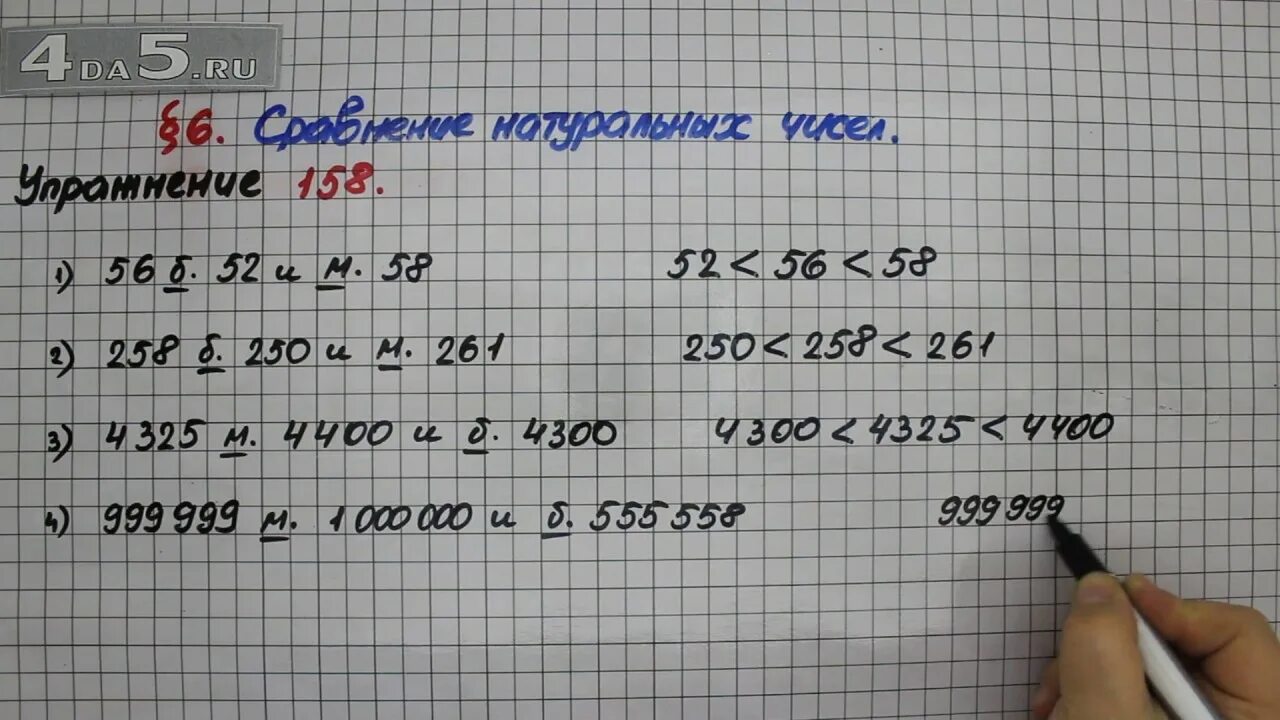 4DA5.RU
§6. Сравнение натуральных чисел.
Упражнение 158.
1) 56 б. 52 и м. 58 52 < 56 < 58
2) 258 б. 250 и м. 261 250 < 258 < 261
3) 4325 м. 4400 и б. 4300 4300 < 4325 < 4400
4) 999 999 м. 1 000 000 и б. 555 558 999 999